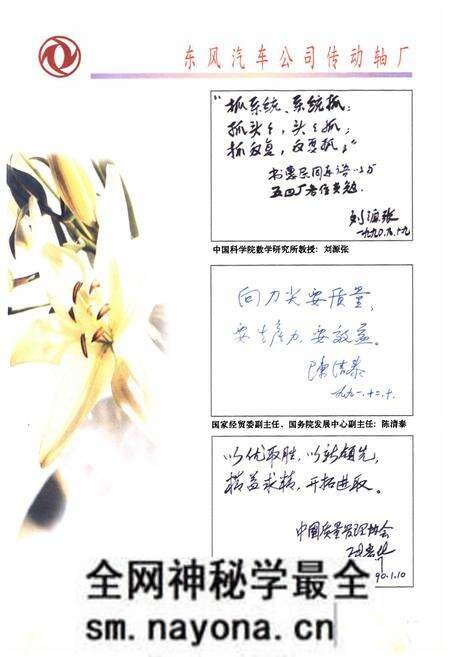 东风汽车公司传动轴厂
“抓系统、系统抓;
抓头头,头头抓;
抓反复,反复抓。”
五四厂
刘源张
一九九〇.九.十九
中国科学院数学研究所教授:刘源张
向刀尖要质量,
要生产力,要效益。
陈清泰
一九九一.十二.十
国家经贸委副主任、国务院发展中心副主任:陈清泰
以优取胜,以新领先,
精益求精,开拓进取。
中国质量管理协会
90.1.10
全网神秘学最全
sm.nayona.cn